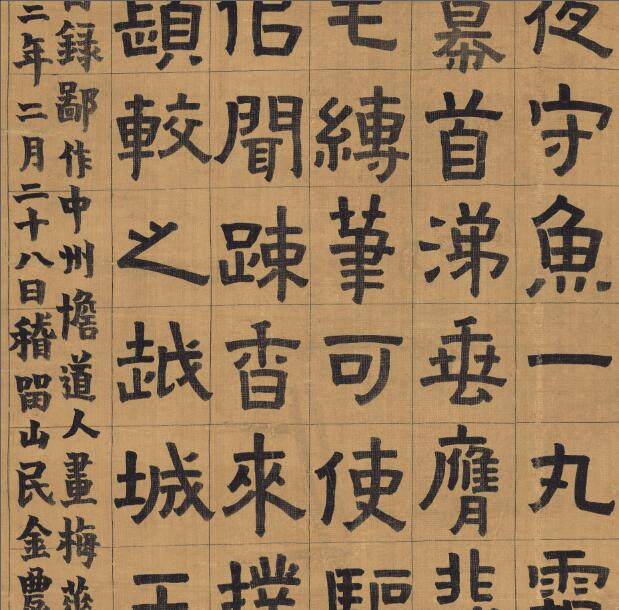 夜守魚一丸
首涕垂膺
毛縛筆可使驅
聞踈香來撲
較之越城王
録鄙作中州憺道人畫梅
二年二月二十八日稽留山民金農